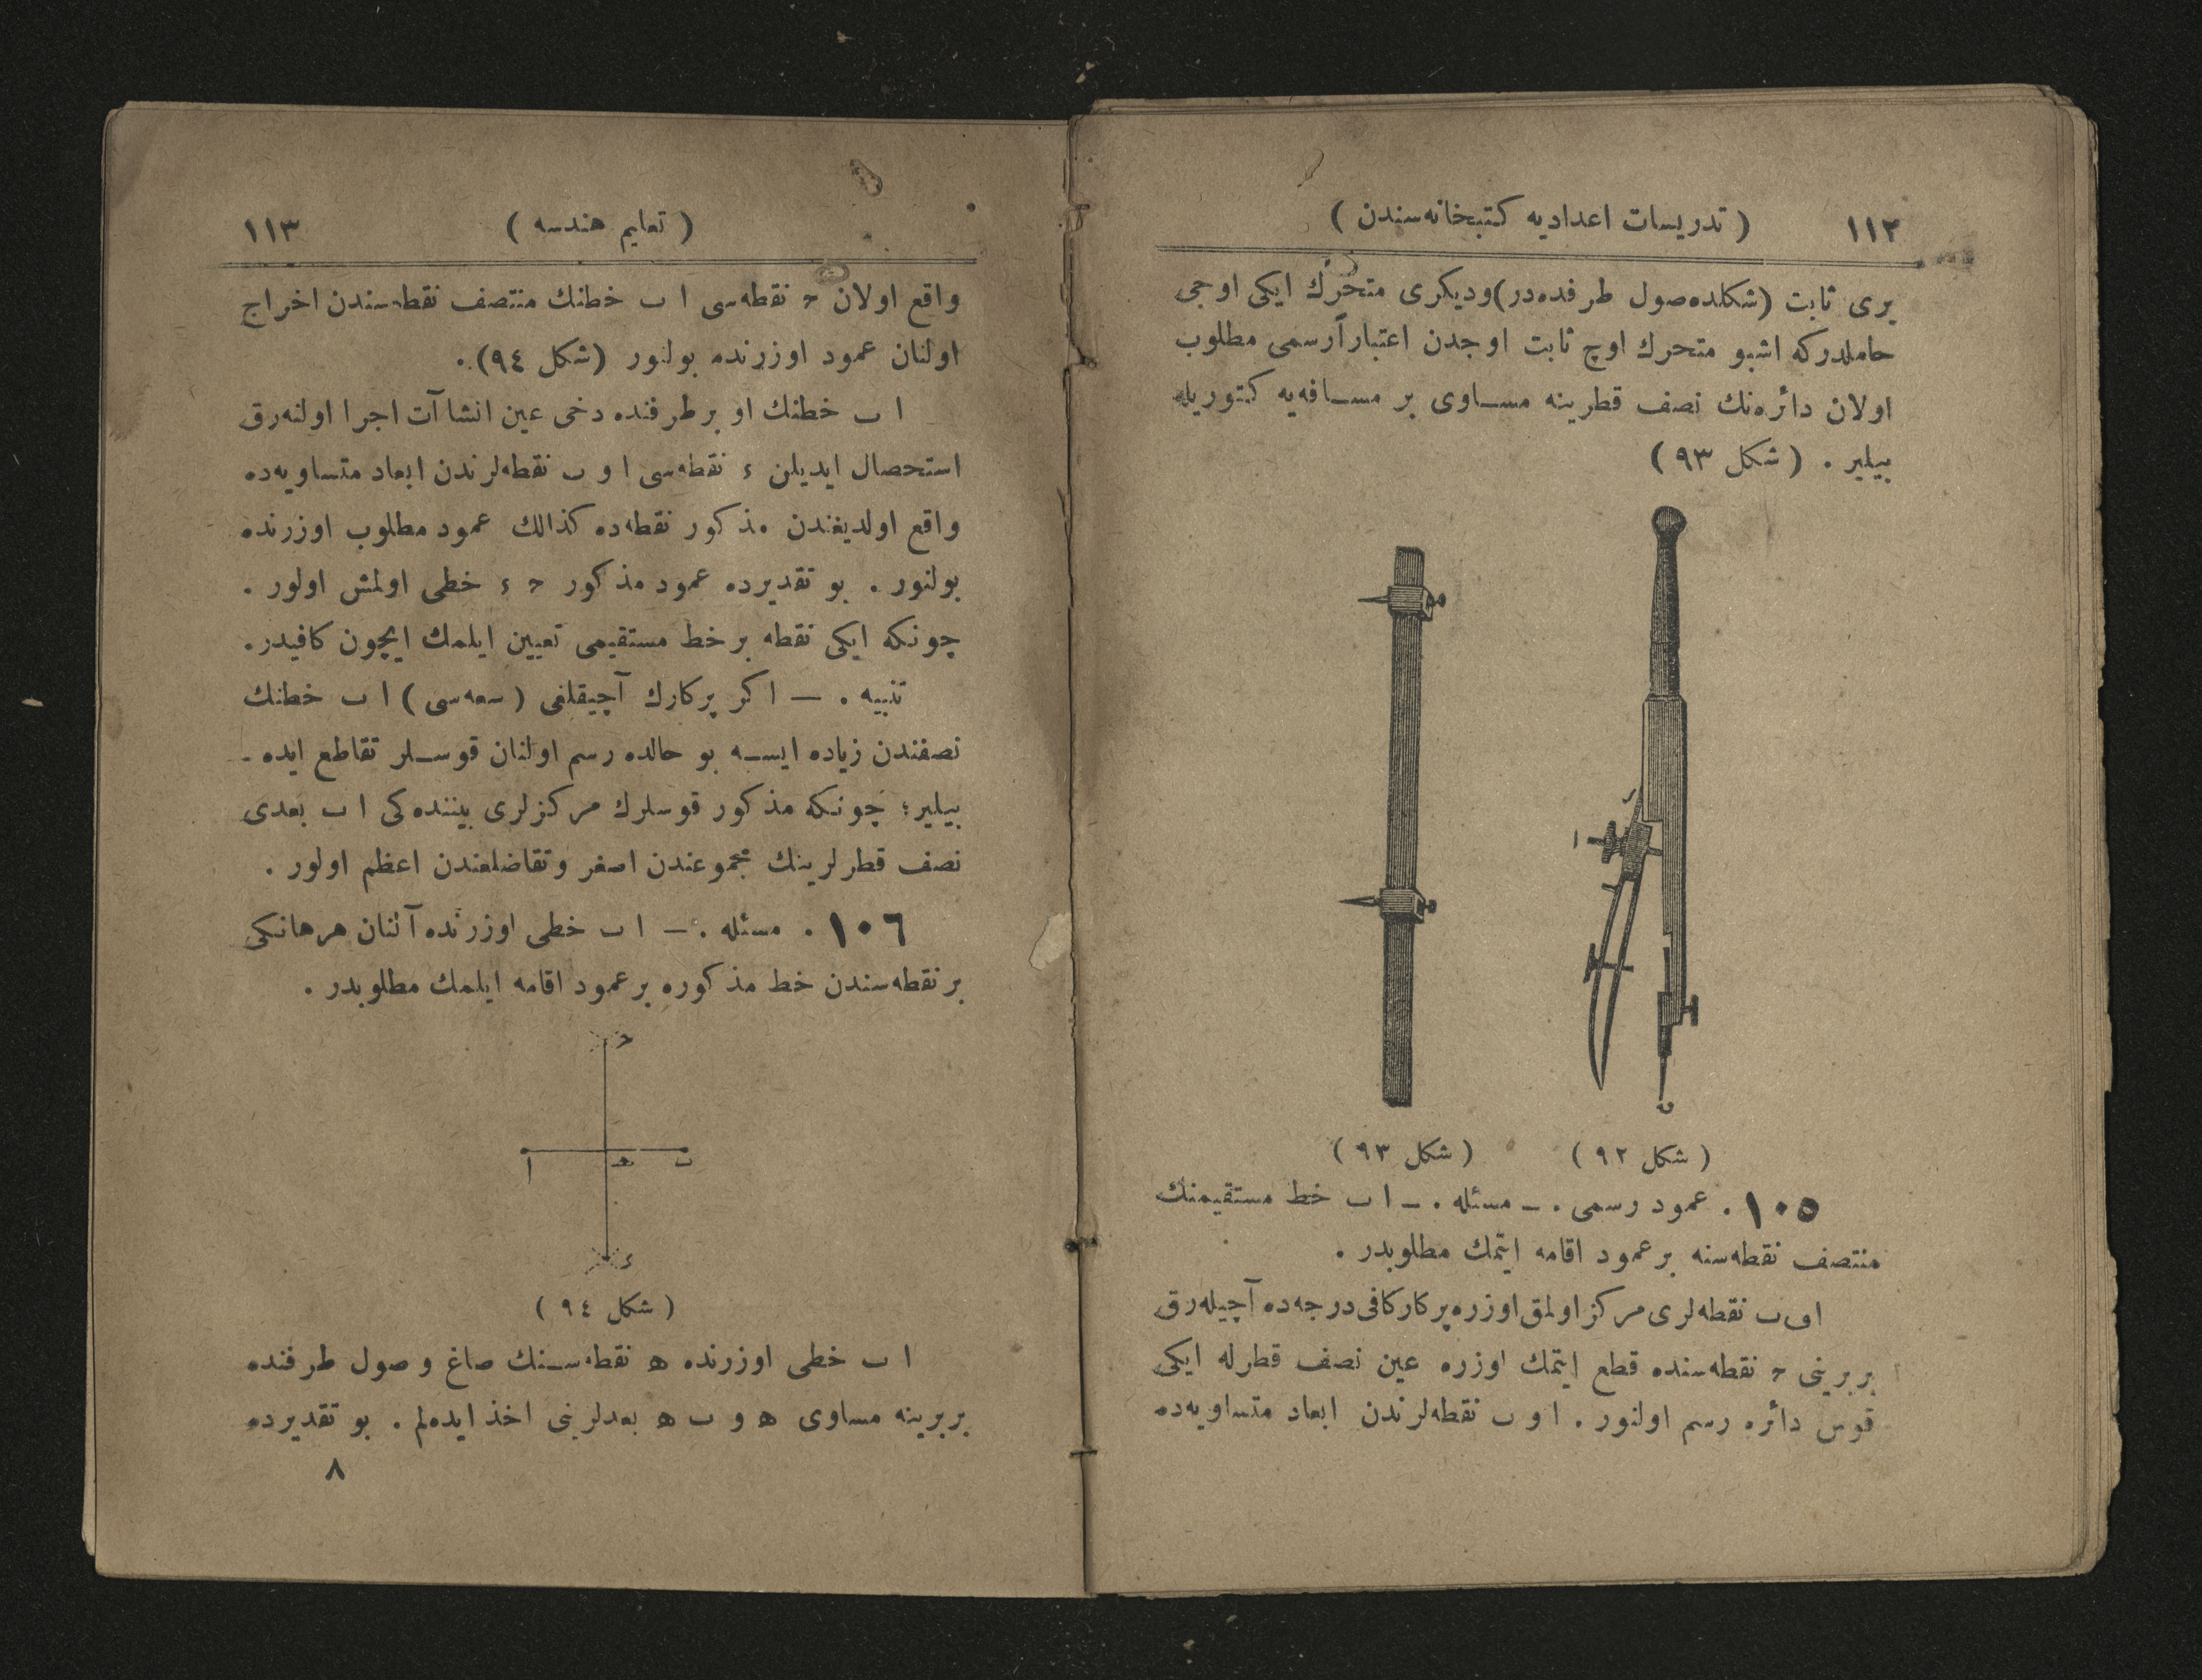 ١١٢
( تدريسات اعداديه كتبخانه‌سندن )
برى ثابت (شكلده صول طرفده‌در) وديكرى متحرك ايكى اوجى
حاملدركه اشبو متحرك اوچ ثابت اوجدن اعتباراً رسمى مطلوب
اولان دائره‌نك نصف قطرينه مساوى بر مسافه‌يه كتوريله
بيلير . ( شكل ٩٣ )
ر
ا
ں
( شكل ٩٢ ) ( شكل ٩٣ )
١٠٥ . عمود رسمى . ـ مسئله . ـ ا ب خط مستقيمنك
منتصف نقطه‌سنه بر عمود اقامه ايتمك مطلوبدر .
ا و ب نقطه‌لرى مركز اولمق اوزره پركار كافى درجه‌ده آچيله‌رق
بربرينى ح نقطه‌سنده قطع ايتمك اوزره عين نصف قطرله ايكى
قوس دائره رسم اولنور . ا و ب نقطه‌لرندن ابعاد متساويه‌ده
( تعليم هندسه )
١١٣
واقع اولان ح نقطه‌سى ا ب خطنك منتصف نقطه‌سندن اخراج
اولنان عمود اوزرنده بولنور (شكل ٩٤) .
ا ب خطنك او بر طرفنده دخى عين انشاآت اجرا اولنه‌رق
استحصال ايديلن ء نقطه‌سى ا و ب نقطه‌لرندن ابعاد متساويه‌ده
واقع اولديغندن مذكور نقطه‌ده كذالك عمود مطلوب اوزرنده
بولنور . بو تقديرده عمود مذكور ح ء خطى اولمش اولور .
چونكه ايكى نقطه بر خط مستقيمى تعيين ايلمك ايچون كافيدر .
تنبيه . — اكر پركارك آچيقلغى ( سعه‌سى ) ا ب خطنك
نصفندن زياده ايسه بو حالده رسم اولنان قوسلر تقاطع ايده ـ
بيلير ؛ چونكه مذكور قوسلرك مركزلرى بيننده‌كى ا ب بعدى
نصف قطرلرينك مجموعندن اصغر وتفاضلندن اعظم اولور .
١٠٦ . مسئله . — ا ب خطى اوزرنده آلنان هر هانكى
بر نقطه‌سندن خط مذكوره بر عمود اقامه ايلمك مطلوبدر .
ح
ا ه ب
ء
( شكل ٩٤ )
ا ب خطى اوزرنده ه نقطه‌سنك صاغ و صول طرفنده
بربرينه مساوى ه و ب ه بعدلرينى اخذ ايده‌لم . بو تقديرده
٨